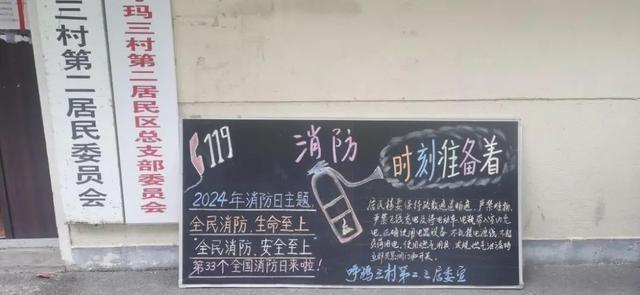 三村第二居民委员会
呼玛三村第二居民区总支部委员会
119
消防
时刻准备着
2024年消防日主题,
全民消防、生命至上
"全民消防、安全至上"
第33个全国消防日来啦!
居民楼要保持疏散通道畅通,严禁堆物,
严禁飞线充电及将电动车、电瓶带入室内充
电,正确使用电器设备,不乱接电源线,不超
负荷用电,使用燃气用具,发现燃气泄漏时
立即关
呼玛三村第二居委宣